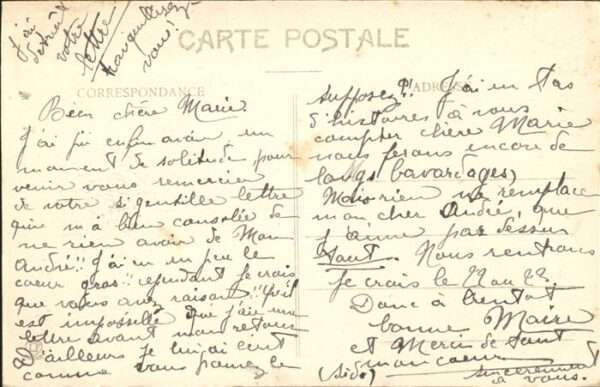 J'ai
détruit
votre
lettre
tranquillisez-
vous!
CARTE POSTALE
CORRESPONDANCE
ADRESSE
Bien chère Marie
J'ai pu enfin avoir un
moment de solitude pour
venir vous remercier
de votre si gentille lettre
qui m'a bien consolée de
ne rien avoir de Mon
André!! J'ai eu un peu le
coeur gros!! cependant je crois
que vous avez raison!! qu'il
est impossible que j'aie une
lettre avant mon retour
D'ailleurs je lui ai écrit
comme vous pouvez le
supposez?! J'ai un tas
d'histoires à vous
compter chère Marie
nous ferons encore de
longs bavardages)
Mais rien ne remplace
mon cher André, que
j'aime par dessus
tout. Nous rentrons
je crois le 21 ou 22.
Donc à bientôt
bonne Marie
et Merci de tout
mon coeur
(side) sincèrement
à vous.